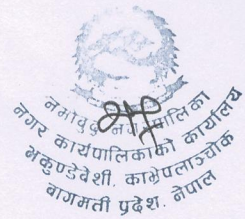 नमोबुद्ध नगरपालिका
नगर कार्यपालिकाको कार्यालय
भकुण्डेबेशी, काभ्रेपलाञ्चोक
बागमती प्रदेश, नेपाल